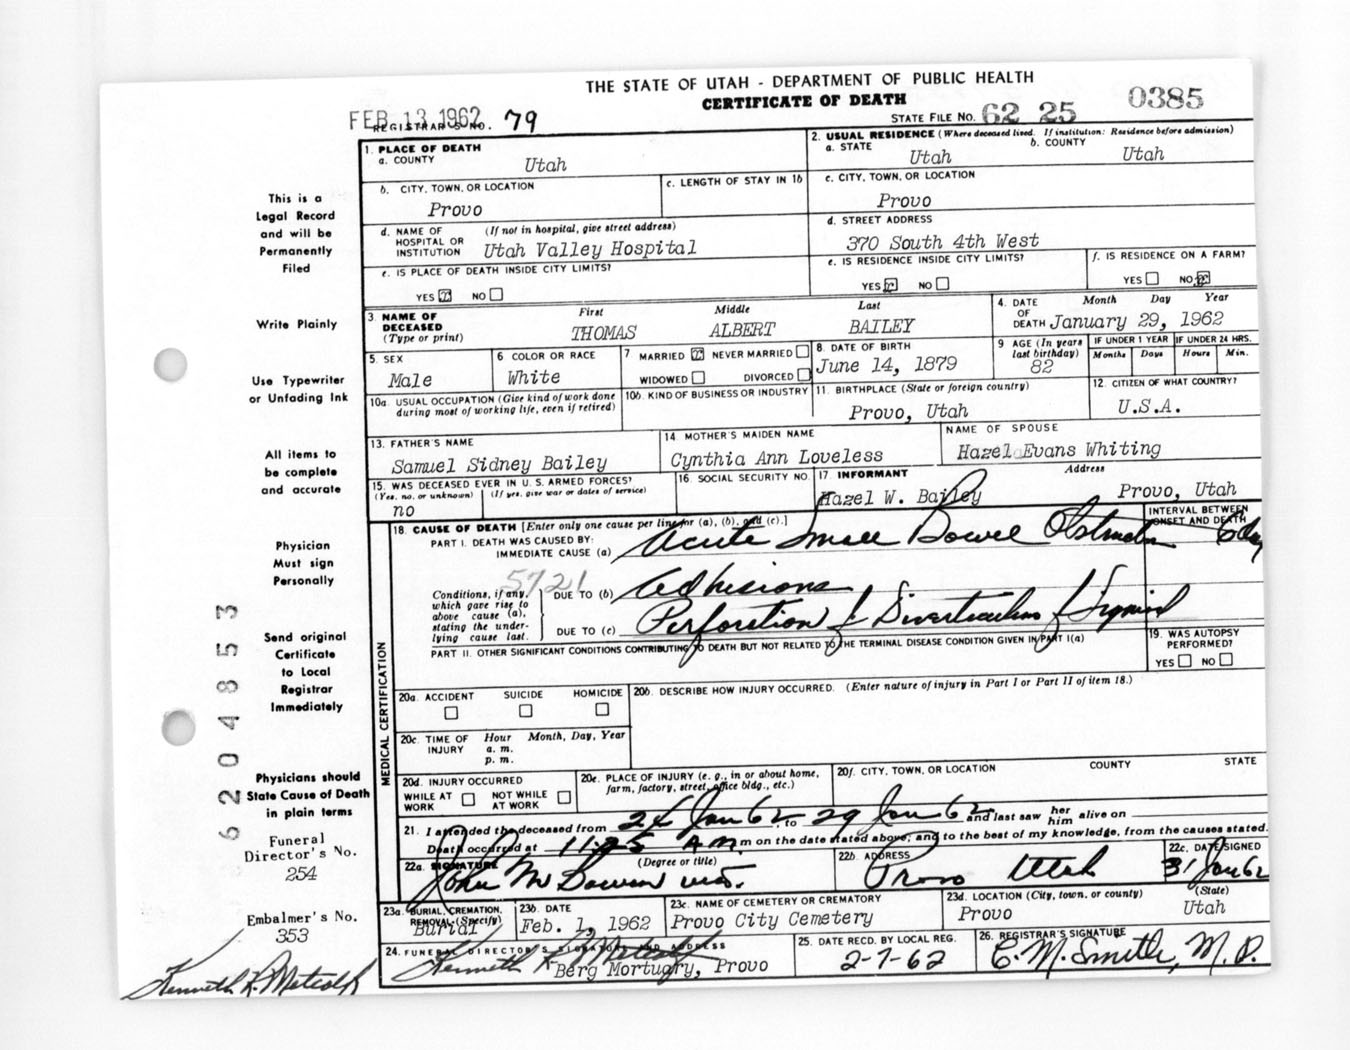 THE STATE OF UTAH - DEPARTMENT OF PUBLIC HEALTH
CERTIFICATE OF DEATH
FEB 13 1962
REGISTRAR'S NO. 79
STATE FILE NO. 62 25 0385
This is a
Legal Record
and will be
Permanently
Filed
Write Plainly
Use Typewriter
or Unfading Ink
All items to
be complete
and accurate
Physician
Must sign
Personally
Send original
Certificate
to Local
Registrar
Immediately
Physicians should
State Cause of Death
in plain terms
Funeral
Director's No.
254
Embalmer's No.
353
Kenneth R. Metcalf
6204853
1. PLACE OF DEATH
a. COUNTY Utah
2. USUAL RESIDENCE (Where deceased lived. If institution: Residence before admission)
a. STATE Utah b. COUNTY Utah
b. CITY, TOWN, OR LOCATION Provo
c. LENGTH OF STAY IN 1b
c. CITY, TOWN, OR LOCATION
Provo
d. NAME OF HOSPITAL OR INSTITUTION (If not in hospital, give street address)
Utah Valley Hospital
d. STREET ADDRESS
370 South 4th West
e. IS PLACE OF DEATH INSIDE CITY LIMITS?
YES NO
e. IS RESIDENCE INSIDE CITY LIMITS?
YES NO
f. IS RESIDENCE ON A FARM?
YES NO
3. NAME OF DECEASED (Type or print)
First Middle Last
THOMAS ALBERT BAILEY
4. DATE OF DEATH Month Day Year
January 29, 1962
5. SEX
Male
6. COLOR OR RACE
White
7 MARRIED NEVER MARRIED
WIDOWED DIVORCED
8. DATE OF BIRTH
June 14, 1879
9 AGE (In years last birthday)
82
IF UNDER 1 YEAR IF UNDER 24 HRS.
Months Days Hours Min.
10a. USUAL OCCUPATION (Give kind of work done during most of working life, even if retired)
10b. KIND OF BUSINESS OR INDUSTRY
11. BIRTHPLACE (State or foreign country)
Provo, Utah
12. CITIZEN OF WHAT COUNTRY?
U.S.A.
13. FATHER'S NAME
Samuel Sidney Bailey
14. MOTHER'S MAIDEN NAME
Cynthia Ann Loveless
NAME OF SPOUSE
Hazel Evans Whiting
15. WAS DECEASED EVER IN U. S. ARMED FORCES?
(Yes, no, or unknown) (If yes, give war or dates of service)
no
16. SOCIAL SECURITY NO.
17. INFORMANT Address
Hazel W. Bailey Provo, Utah
MEDICAL CERTIFICATION
18. CAUSE OF DEATH [Enter only one cause per line for (a), (b), and (c).]
INTERVAL BETWEEN ONSET AND DEATH
PART I. DEATH WAS CAUSED BY:
IMMEDIATE CAUSE (a) Acute Small Bowel Obstruction 6 day
5721
Conditions, if any, which gave rise to above cause (a), stating the underlying cause last.
DUE TO (b) Adhesions
DUE TO (c) Perforation of Diverticulum of Sigmoid
PART II. OTHER SIGNIFICANT CONDITIONS CONTRIBUTING TO DEATH BUT NOT RELATED TO THE TERMINAL DISEASE CONDITION GIVEN IN PART I(a)
19. WAS AUTOPSY PERFORMED?
YES NO
20a. ACCIDENT SUICIDE HOMICIDE
20b. DESCRIBE HOW INJURY OCCURRED. (Enter nature of injury in Part I or Part II of item 18.)
20c. TIME OF INJURY Hour Month, Day, Year
a. m.
p. m.
20d. INJURY OCCURRED
WHILE AT WORK NOT WHILE AT WORK
20e. PLACE OF INJURY (e. g., in or about home, farm, factory, street, office bldg., etc.)
20f. CITY, TOWN, OR LOCATION COUNTY STATE
21. I attended the deceased from 26 Jan 62, to 29 Jan 62 and last saw her him alive on
Death occurred at 11:25 A.M. m on the date stated above, and to the best of my knowledge, from the causes stated.
22a. SIGNATURE (Degree or title)
John M Bowen M.D.
22b. ADDRESS
Provo Utah
22c. DATE SIGNED
31 Jan 62
23a. BURIAL, CREMATION, REMOVAL (Specify)
Burial
23b. DATE
Feb. 1, 1962
23c. NAME OF CEMETERY OR CREMATORY
Provo City Cemetery
23d. LOCATION (City, town, or county) (State)
Provo Utah
24. FUNERAL DIRECTOR'S SIGNATURE AND ADDRESS
Kenneth R. Metcalf
Berg Mortuary, Provo
25. DATE RECD. BY LOCAL REG.
2-7-62
26. REGISTRAR'S SIGNATURE
C. M. Smith, M. D.